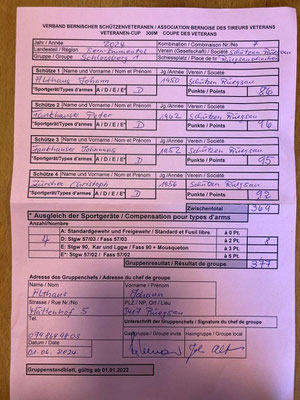 VERBAND BERNISCHER SCHÜTZENVETERANEN / ASSOCIATION BERNOISE DES TIREURS VETERANS
VETERANEN-CUP 300M COUPE DES VETERANS
Jahr / Année 2024 Kombination / Combinaison Nr./No 7
Landesteil / Région Verein (Gesellschaft) / Société Schützen Rüegsau
Gruppe / Groupe Schlossberg 1 Schiessplatz / Place de tir
Schütze 1 Name und Vorname / Nom et Prénom Jg./Année Verein / Société
Althaus Johann 1950 Schützen Rüegsau
*Sportgerät/Types d'armes A / D / E / E* D Punkte / Points 86
Schütze 2 Name und Vorname / Nom et Prénom Jg./Année Verein / Société
Fankhauser Peter 1942 Schützen Rüegsau
*Sportgerät/Types d'armes A / D / E / E* D Punkte / Points 96
Schütze 3 Name und Vorname / Nom et Prénom Jg./Année Verein / Société
Fankhauser 1952 Schützen Rüegsau
*Sportgerät/Types d'armes A / D / E / E* D Punkte / Points 95
Schütze 4 Name und Vorname / Nom et Prénom Jg./Année Verein / Société
Zürcher Christoph 1956 Schützen Rüegsau
*Sportgerät/Types d'armes A / D / E / E* D Punkte / Points 92
Zwischentotal 369
* Ausgleich der Sportgeräte / Compensation pour types d'arms
Anzahl/Nombre
A: Standardgewehr und Freigewehr / Standard et Fusil libre à 0 Pkt.
4 D: Stgw 57/03 / Fass 57/03 à 2 Pkt. 8
E: Stgw 90, Kar und Lggw / Fass 90 + Mousqueton à 3 Pkt.
E*: Stgw 57/02 / Fass 57/02
Gruppenresultat / Résultat de groupe 377
Adresse des Gruppenchefs / Adresse du chef de groupe
Name / Nom Vorname / Prénom
Althaus Johann
Strasse / Rue Nr./No PLZ / NP, Ort / Lieu
5 3417 Rüegsau
Tel. Unterschrift der Gruppenchefs / Signature du chef de groupe
Gastgruppe / Groupe invité Heimgruppe / Groupe local
Datum / Date
01.06.2024
Gruppenstandblatt, gültig ab 01.01.2022